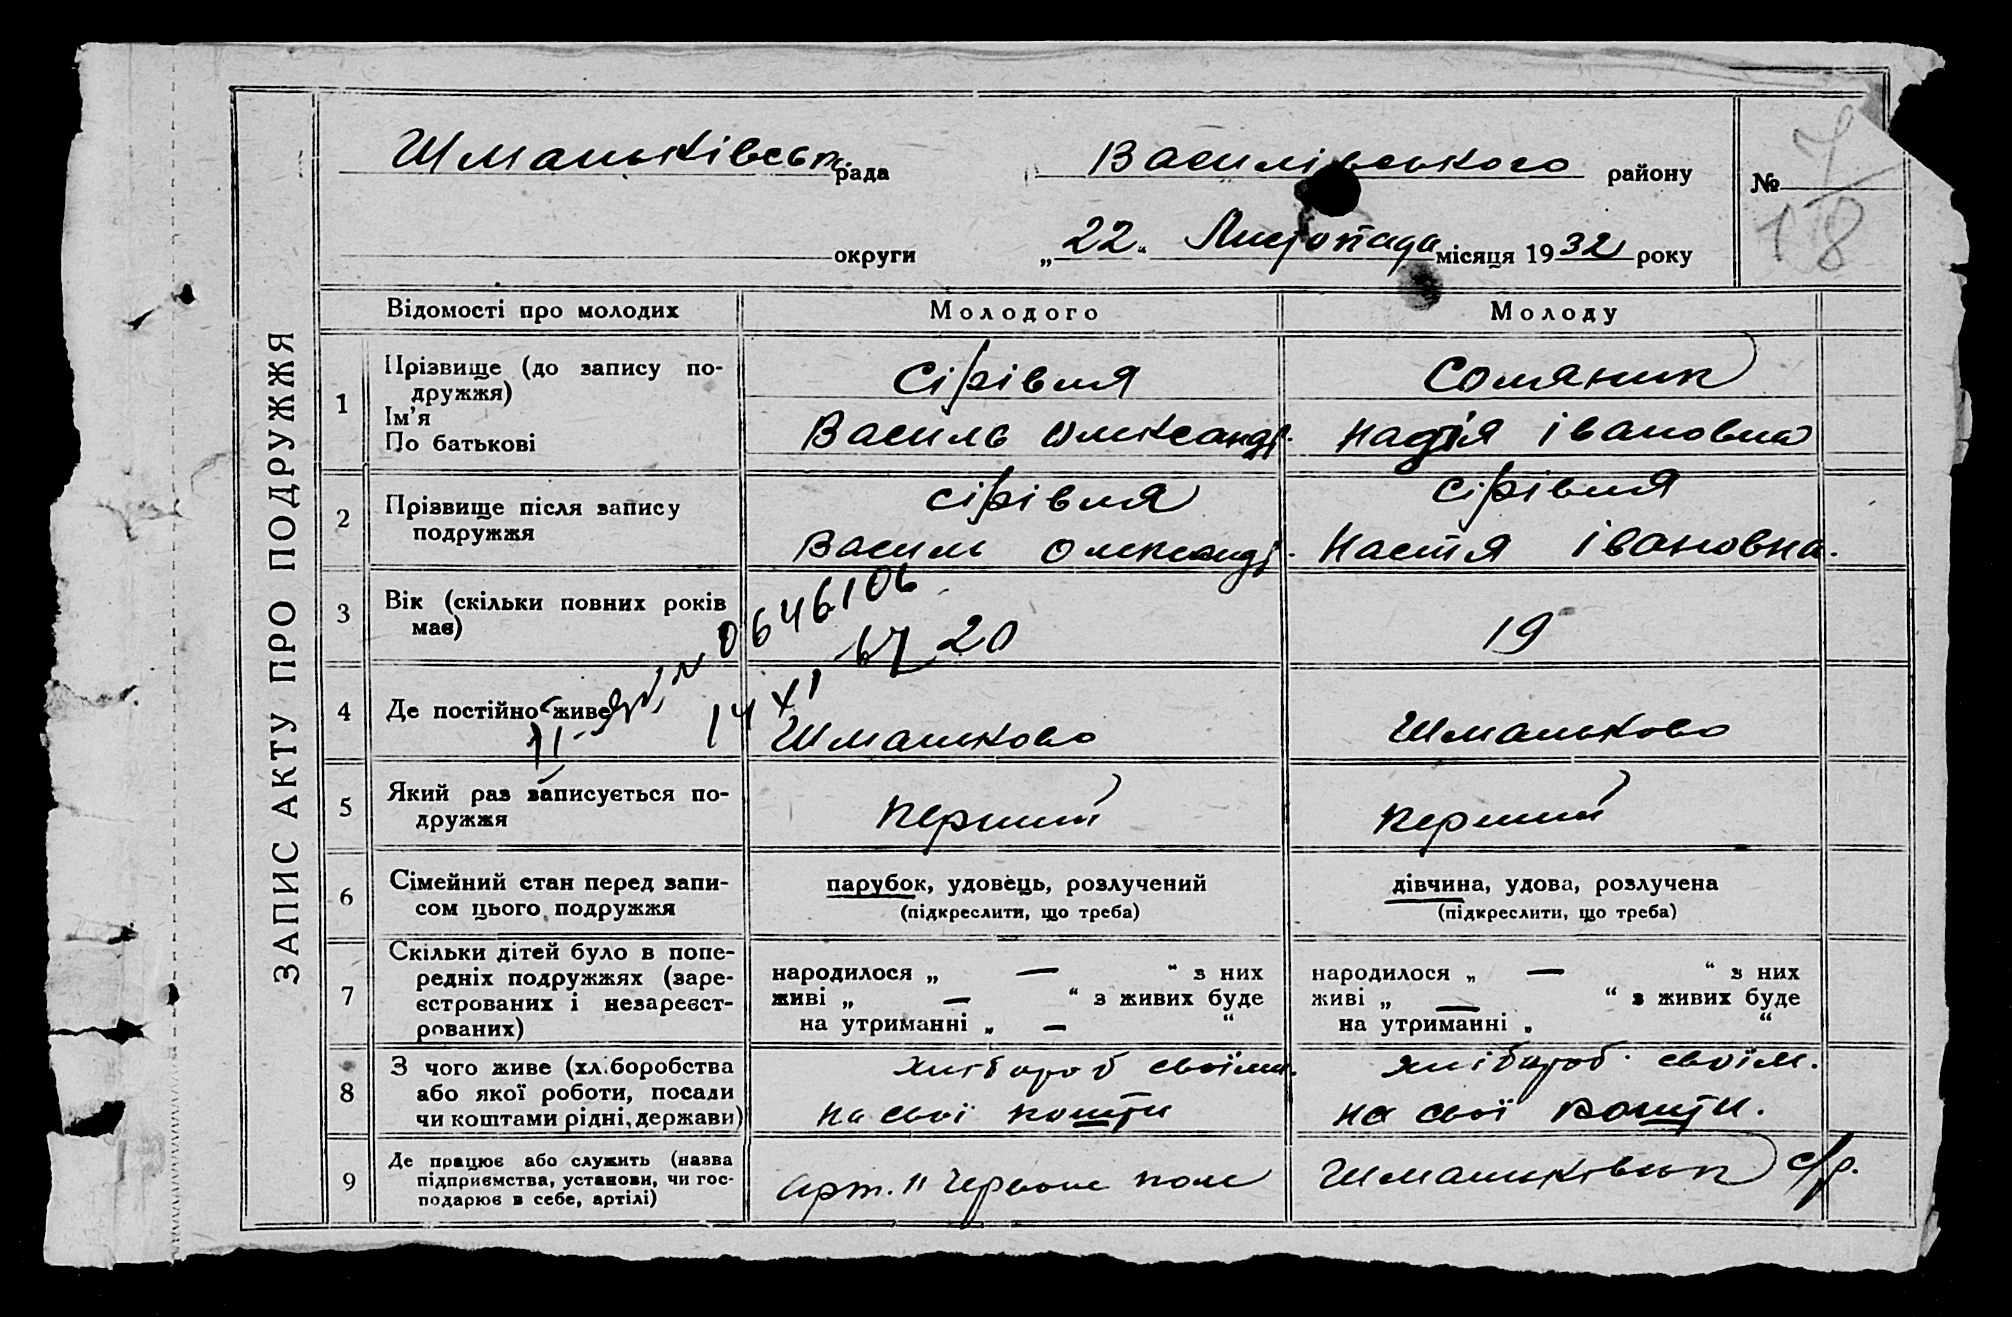 ЗАПИС АКТУ ПРО ПОДРУЖЖЯ
Шманьківськ. рада Василівського району №
7
18
округи „22“ Листопада місяця 1932 року
Відомості про молодих Молодого Молоду
1 Прізвище (до запису по-
дружжя)
Ім'я
По батькові
Сірівля Соляник
Василь Олександр. Надія Івановна
2 Прізвище після запису
подружжя
Сірівля Сірівля
Василь Олександр. Настя Івановна.
3 Вік (скільки повних років
має)
20 19
0646106
14 XI 67
4 Де постійно живе
Шманьково Шманьково
5 Який раз записується по-
дружжя
перший перший
6 Сімейний стан перед запи-
сом цього подружжя
парубок, удовець, розлучений
(підкреслити, що треба)
дівчина, удова, розлучена
(підкреслити, що треба)
7 Скільки дітей було в попе-
редніх подружжях (заре-
єстрованих і незареєст-
рованих)
народилося „ — “ з них
живі „ — “ з живих буде
на утриманні „ — “
народилося „ — “ з них
живі „ — “ з живих буде
на утриманні „ “
8 З чого живе (хліборобства
або якої роботи, посади
чи коштами рідні, держави)
хлібороб своїми.
на свої кошти
хлібороб своїм.
на свої кошти.
9 Де працює або служить (назва
підприємства, установи, чи гос-
подарює в себе, артілі)
арт. "Червоне поле
Шманьківськ с/р.